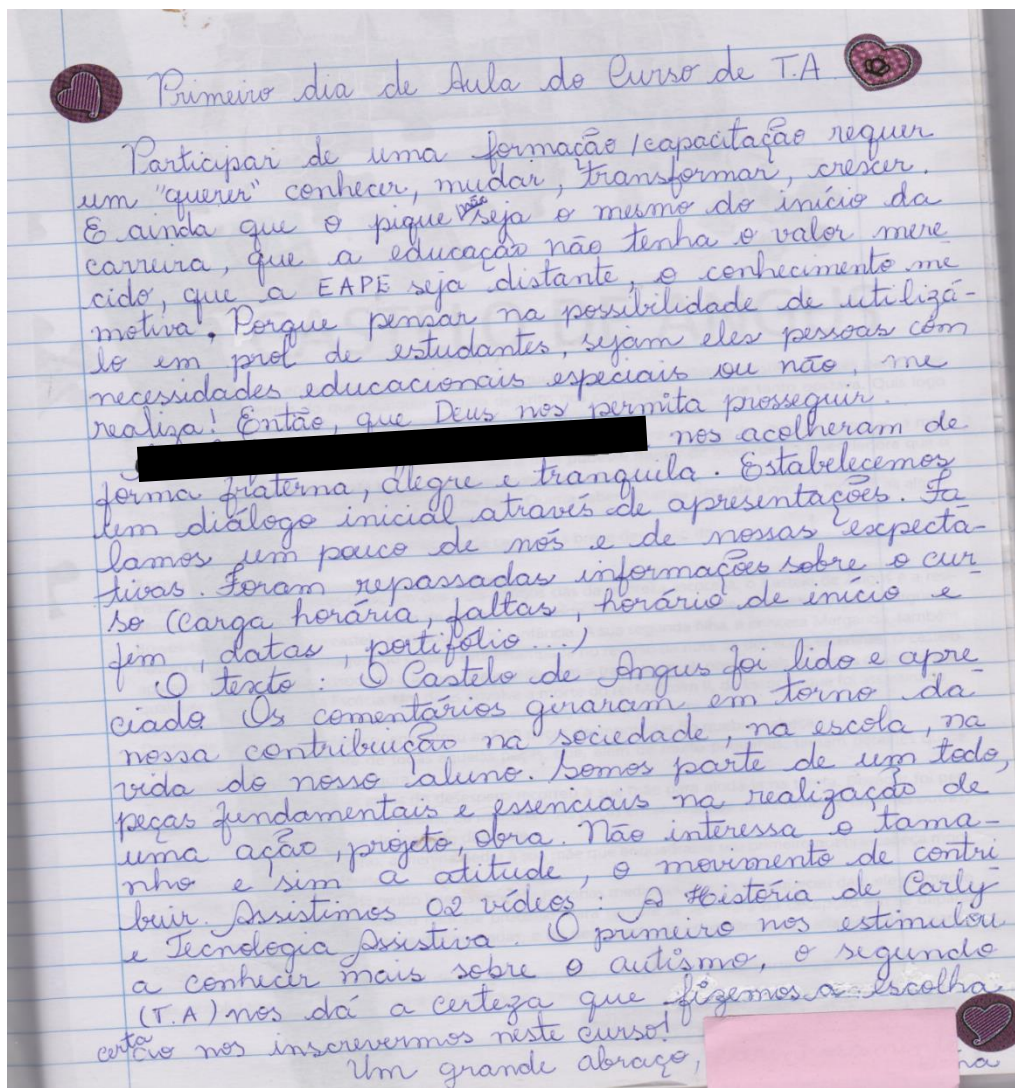 Primeiro dia de Aula do Curso de T.A
Participar de uma formação/capacitação requer
um "querer" conhecer, mudar, transformar, crescer.
E ainda que o pique não seja o mesmo do início da
carreira, que a educação não tenha o valor mere
cido, que a EAPE seja distante, o conhecimento me
motiva. Porque pensar na possibilidade de utilizá-
lo em prol de estudantes, sejam eles pessoas com
necessidades educacionais especiais ou não, me
realiza! Então, que Deus nos permita prosseguir.
nos acolheram de
forma fraterna, alegre e tranquila. Estabelecemos
um diálogo inicial através de apresentações. Fa
lamos um pouco de nós e de nossas expectá-
tivas. Foram repassadas informações sobre o cur
so (carga horária, faltas, horário de início e
fim, datas, portifólio...)
O texto: O Castelo de Angus foi lido e apre
ciado. Os comentários giraram em torno da
nossa contribuição na sociedade, na escola, na
vida do nosso aluno. Somos parte de um todo,
peças fundamentais e essenciais na realização de
uma ação, projeto, obra. Não interessa o tama-
nho e sim a atitude, o movimento de contri
buir. Assistimos 02 vídeos: A História de Carly
e Tecnologia Assistiva. O primeiro nos estimulou
a conhecer mais sobre o autismo, o segundo
(T.A) nos dá a certeza que fizemos a escolha
certa ao nos inscrevermos neste curso!
Um grande abraço,